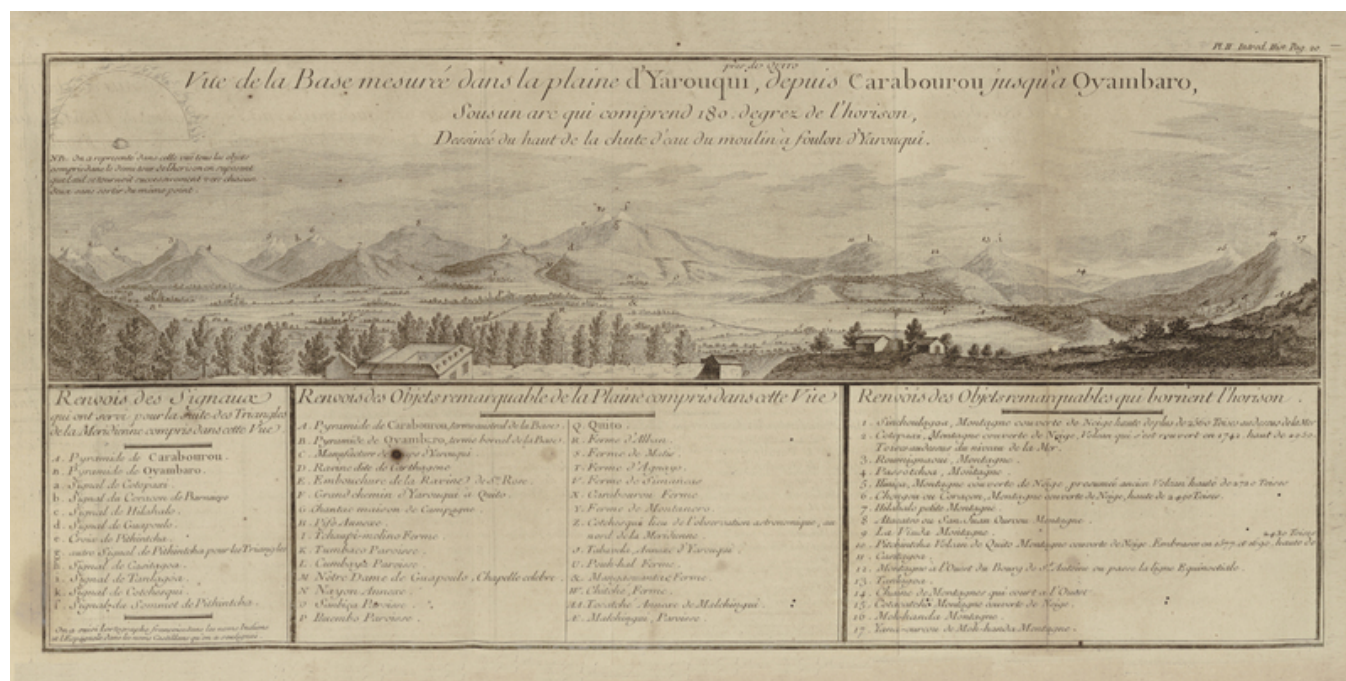 Pl. II. Introd. Hist. Pag. 10
près de Quito
Vue de la Base mesurée dans la plaine d'Yarouqui, depuis Carabourou jusqu'à Oyambaro,
Sous un arc qui comprend 180. degrez de l'horison,
Dessinée du haut de la chute d'eau du moulin à foulon d'Yarouqui.
NB. On a représenté dans cette vüe tous les objets
compris dans le demi tour de l'horison en suposant
que l'œil se tournoit successivement vers chacun
d'eux sans sortir du même point.
Renvois des Signaux
qui ont servi pour la suite des Triangles
de la Méridienne compris dans cette Vüe
A. Pyramide de Carabourou.
B. Pyramide de Oyambaro.
a. Signal de Cotopaxi.
b. Signal du Coraçon de Barnuevo
c. Signal de Hilahalo.
d. Signal de Guapoulo.
e. Croix de Pitchintcha.
g. autre Signal de Pitchintcha pour les Triangles
h. Signal de Casitagoa.
i. Signal de Tanlagoa.
k. Signal de Cotchesqui.
Signal du Sommet de Pitchintcha.
On a suivi l'ortographe françoise dans les noms Indiens
et l'Espagnole dans les noms Castillans qu'on a soulignés.
Renvois des Objets remarquable de la Plaine compris dans cette Vüe
A. Pyramide de Carabourou, terme austral de la Base.
B. Pyramide de Oyambaro, terme boreal de la Base.
C. Manufacture de d'Yarouqui.
D. Ravine dite de Carthagene
E. Embouchure de la Ravine de Ste. Rose.
F. Grand chemin d'Yarouqui à Quito.
G. Chantac maison de Campagne.
H. Pifo Annexe.
I. Tchaupi-molino Ferme.
K. Tumbaco Paroisse.
L. Cumbaya Paroisse
M. Nôtre Dame de Guapoulo, Chapelle celebre.
N. Nayon Annexe.
O. Sanbiça Paroisse.
P. Puembo Paroisse.
Q. Quito.
R. Ferme d'Alban.
S. Ferme de Matis.
T. Ferme d'Agnayo.
V. Ferme de Simanais
X. Carabourou Ferme
Y. Ferme de Montanero
Z. Cotchesqui lieu de l'observation astronomique, au
nord de la Meridienne
Annexe d'Yarouqui.
Ferme.
&. Ferme.
W. Chitche Ferme.
Tocatche Annexe de Malchingui.
Æ. Malchingui, Paroisse.
Renvois des Objets remarquables qui bornent l'horison.
1. Sinchoulagoa, Montagne couverte de Neige haute de plus de 2560 Toises au dessus de la Mer
2. Cotopaxi, Montagne couverte de Neige, Volcan qui s'est rouvert en 1742. haut de
Toises au dessus du niveau de la Mer.
3. Rouminaoui, Montagne.
4. Passotchoa, Montagne
5. Iliniça, Montagne couverte de Neige, presumée ancien Volcan haute de 2720 Toises
6. Chongon ou Coraçon, Montagne couverte de Neige, haute de 2490 Toises.
7. Hilahalo petite Montagne
8. Atacatso ou San Juan Ourcou Montagne.
9. La Viuda Montagne.
2430 Toises
10. Pitchintcha Volcan de Quito Montagne couverte de Neige. Embrasée en 1577. et 1690, haute de
11. Casitagoa.
12. Montagne à l'Ouest du Bourg de St. Antoine ou passe la ligne Equinoctiale.
13. Tanlagoa.
14. Chaîne de Montagnes qui court à l'Ouest.
15. Cotacatche Montagne couverte de Neige.
16. Mohohanda Montagne.
17. Yana-ourcou de Moh-handa Montagne.